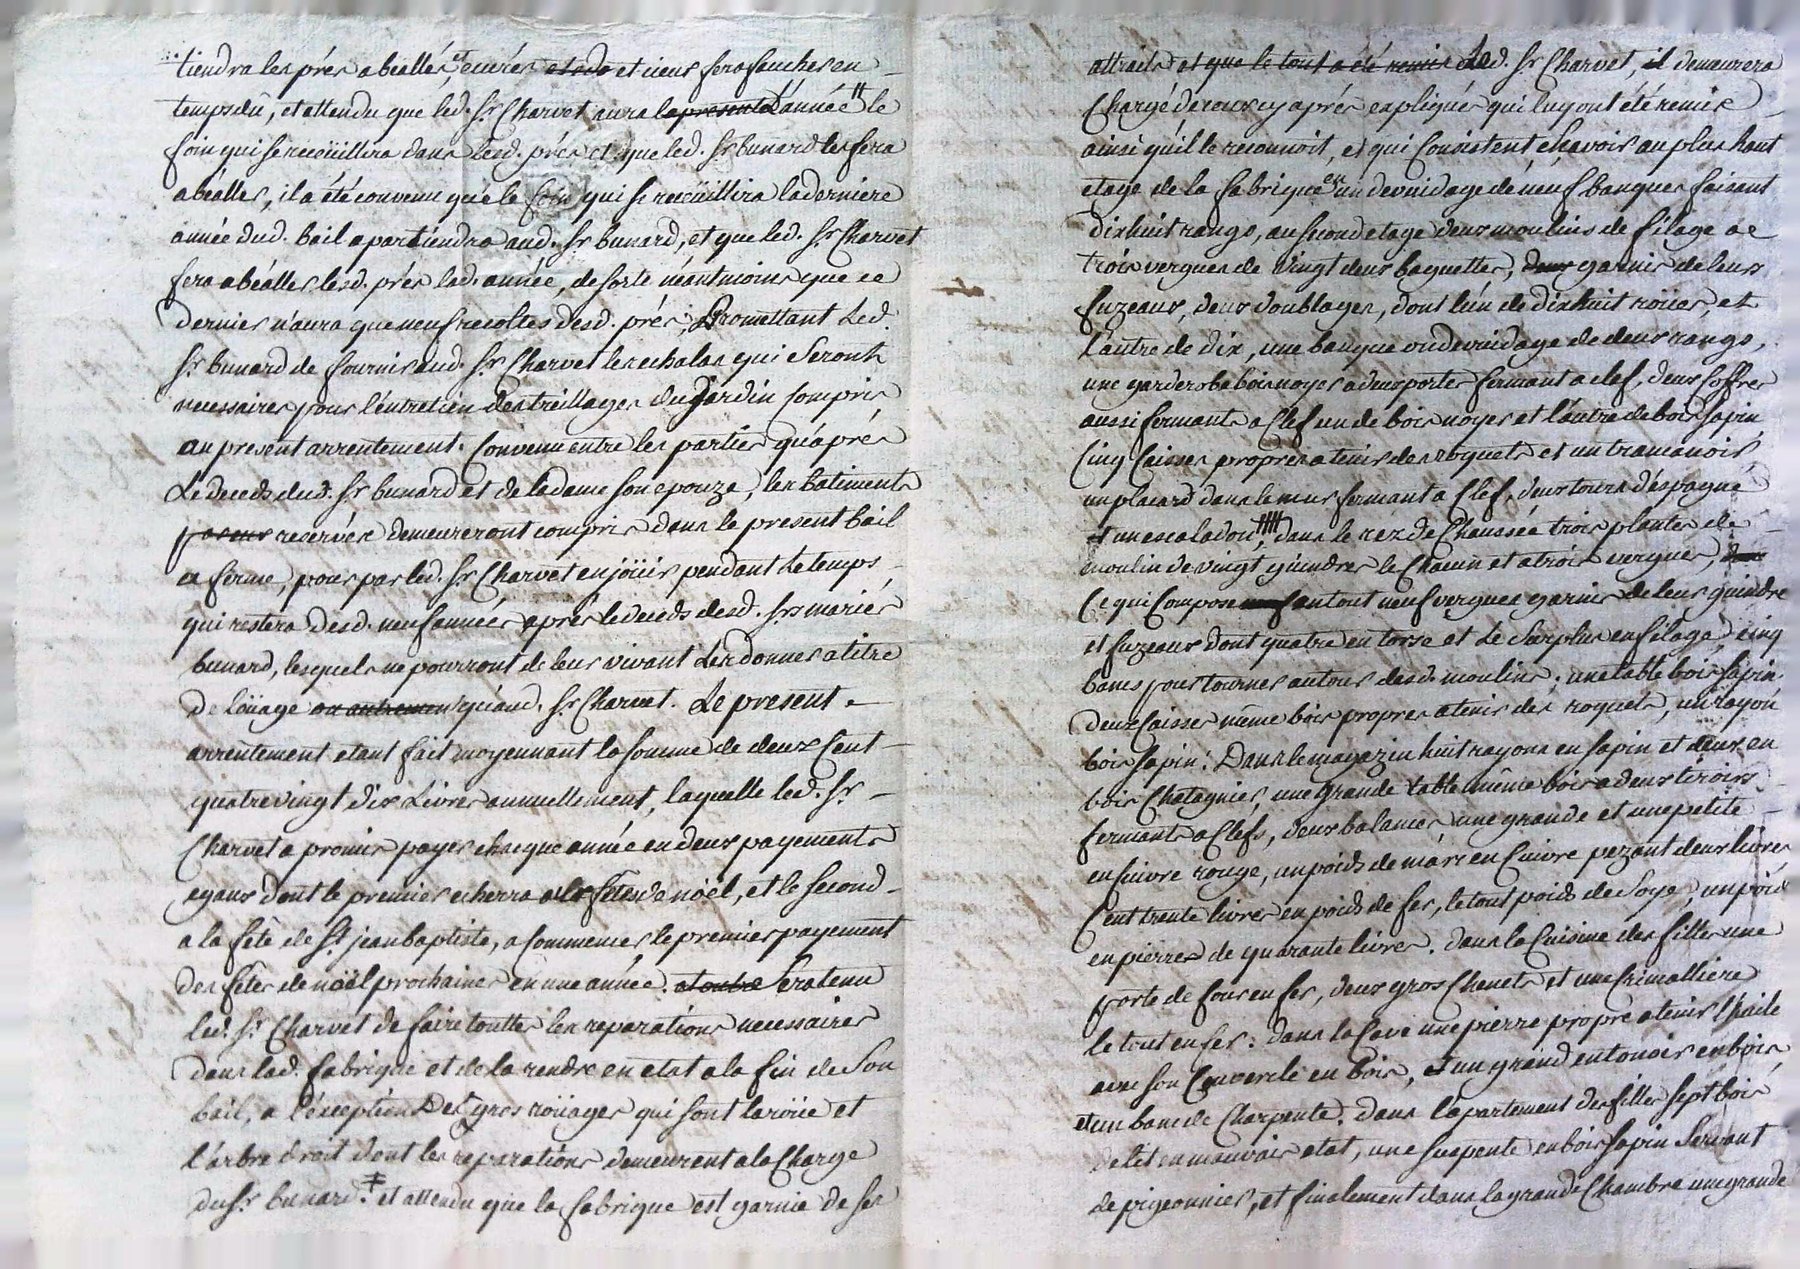 tiendra les prés abéallés, et curés et iceux fera faucher en
temps dû, et attendu que led. Sr Charvet aura la presente L'année le
foin qui se recüillira dans lesd. prés et que led. Sr bunard les fera
abéaller, il a été convenu que le foin qui se recüillira la derniere
année dud. bail apartiendra aud. Sr bunard, et que led. Sr Charvet
fera abéaller lesd. prés lad. année, de sorte néantmoins que ce
dernier n'aura que neuf recoltes desd. prés, Promettant Led.
Sr bunard de fournir aud. Sr Charvet les echalas qui Seront
necessaires pour l'entretien des treillages du Jardin compris
au present arrentement. Convenu entre les parties qu'aprés
Le decéds dud. Sr bunard et de la dame son epouze, les batiments
par eux reservés demeureront compris dans le present bail
a ferme, pour par led. Sr Charvet en joüir pendant le temps
qui restera desd. neuf années aprés le decéds desd. Srs mariés
bunard, lesquels ne pourront de leur vivant Les donner a titre
de Loüage ou autrement qu'aud. Sr Charvet. Le present
arrentement etant fait moyennant la somme de deux Cent
quatre vingt dix Livres annuellement, laquelle led. Sr
Charvet a promis payer chaque année en deux payements
egaux dont le premier echerra a les fêtes de noël, et le second
a la fête de St jean baptiste, a commencer le premier payement
des fêtes de noël prochaines en une année. et outre Sera tenu
led. Sr Charvet de faire touttes les reparations necessaires
dans lad. fabrique et de la rendre en etat a la fin de Son
bail, a l'éxception Des gros roüages qui sont la roüe et
l'arbre droit dont les reparations demeurent a la Charge
du Sr bunard. ǂ et attendu que la fabrique est garnie de ses
attraits et que le tout a été remis aud. Sr Charvet, il demeurera
Chargé de ceux cy aprés expliqués qui luy ont été remis
ainsi qu'il le reconnoit, et qui Consistent sçavoir au plus haut
etage de la fabrique en un devuidage de neuf banques faisant
dix huit rangs, au second etage deux moulins de filage a
trois vergues de vingt deux baguettes, garnis de leurs
fuzeaux, deux doublages, dont l'un de dix huit roües, et
L'autre de dix, une banque ou devuidage de deux rangs,
une garderobe bois noyer a deux portes fermant a clef, deux Coffres
aussi fermants a Clef un de bois noyer et l'autre de bois sapin
Cinq Caisses propres a tenir des roquets et un tramanoir,
un placard dans le mur fermant a Clef, deux tours d'éspagne
et un escaladou, dans le rez de Chaussée trois plantes de
moulin de vingt guindres le Chacun et a trois vergues,
Ce qui Compose en tout neuf vergues garnies de leur guindre
et fuzeaux dont quatre en torse et le Surplus en filage, cinq
bancs pour tourner autour desd. moulins. une table bois sapin
deux Caisses même bois propres a tenir des roquets, un rayon
bois sapin. Dans le magazin huit rayons en sapin et deux en
bois Chatagnier, une grande table même bois a deux tiroirs
fermants a Clefs, deux balances une grande et une petite
en Cuivre rouge, un poids de marc en Cuivre pezant deux livres
Cent trente livres en poids de fer, le tout poids de Soye, un poid
en pierres de quarante livres. Dans la Cuisine des filles une
porte de four en fer, deux gros Chenets et une Crimalliere
le tout en fer. dans la Cave une pierre propre a tenir l'huile
avec son Couvercle en bois, et un grand entonoir en bois,
et un banc de Charpente. Dans l'apartement des filles sept bois
de lit en mauvais etat, une suspente en bois sapin Servant
de pigeonnier, et finalement dans la grande Chambre une grande